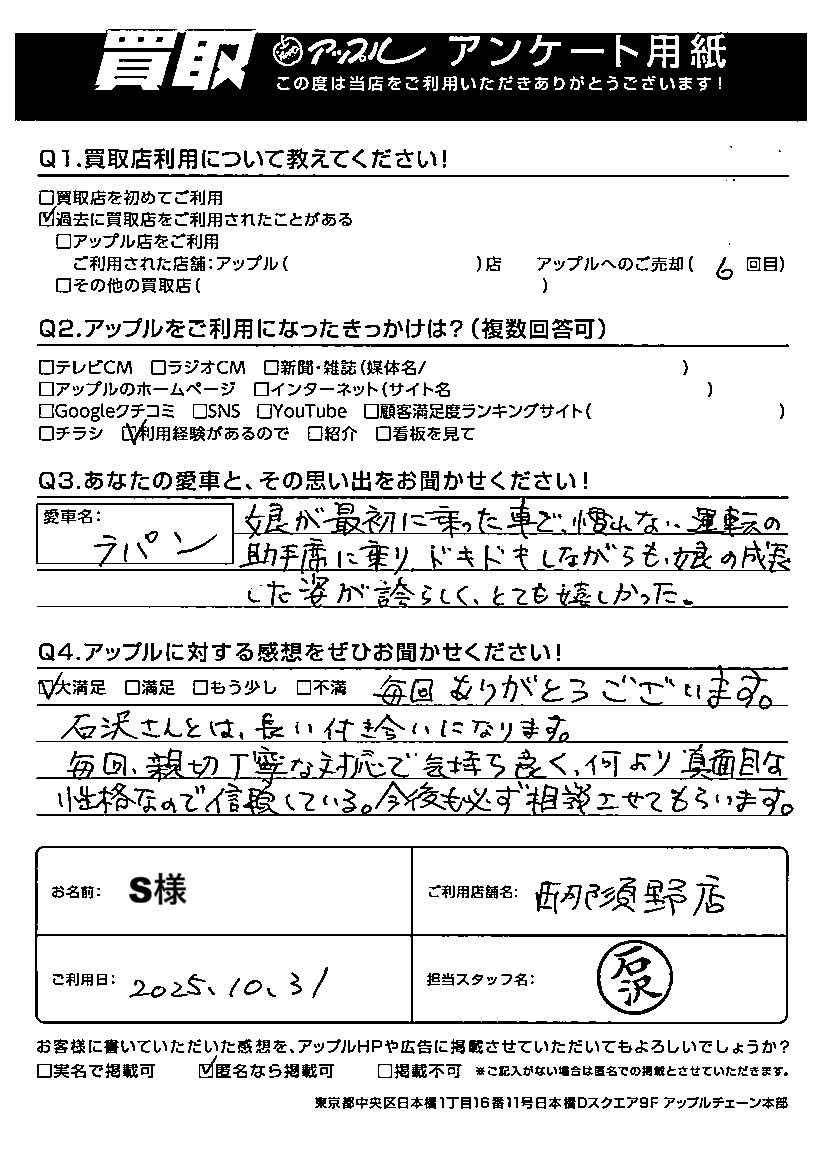 買取 アップル アンケート用紙
この度は当店をご利用いただきありがとうございます！
Q1.買取店利用について教えてください！
□買取店を初めてご利用
☑過去に買取店をご利用されたことがある
□アップル店をご利用
ご利用された店舗：アップル（ ）店 アップルへのご売却（ 6 回目）
□その他の買取店（ ）
Q2.アップルをご利用になったきっかけは？（複数回答可）
□テレビCM □ラジオCM □新聞・雑誌（媒体名/ ）
□アップルのホームページ □インターネット（サイト名 ）
□Googleクチコミ □SNS □YouTube □顧客満足度ランキングサイト（ ）
□チラシ ☑利用経験があるので □紹介 □看板を見て
Q3.あなたの愛車と、その思い出をお聞かせください！
愛車名： ラパン 娘が最初に乗った車で、慣れない運転の
助手席に乗り、ドキドキしながらも、娘の成長
した姿が誇らしく、とても嬉しかった。
Q4.アップルに対する感想をぜひお聞かせください！
☑大満足 □満足 □もう少し □不満 毎回ありがとうございます。
石沢さんとは、長い付き合いになります。
毎回、親切丁寧な対応で気持ち良く、何より真面目な
性格なので信頼している。今後も必ず相談させてもらいます。
お名前： S様 ご利用店舗名： 西那須野店
ご利用日： 2025.10.31 担当スタッフ名： 石沢
お客様に書いていただいた感想を、アップルHPや広告に掲載させていただいてもよろしいでしょうか？
□実名で掲載可 ☑匿名なら掲載可 □掲載不可 ※ご記入がない場合は匿名での掲載とさせていただきます。
東京都中央区日本橋1丁目16番11号日本橋Dスクエア9F アップルチェーン本部